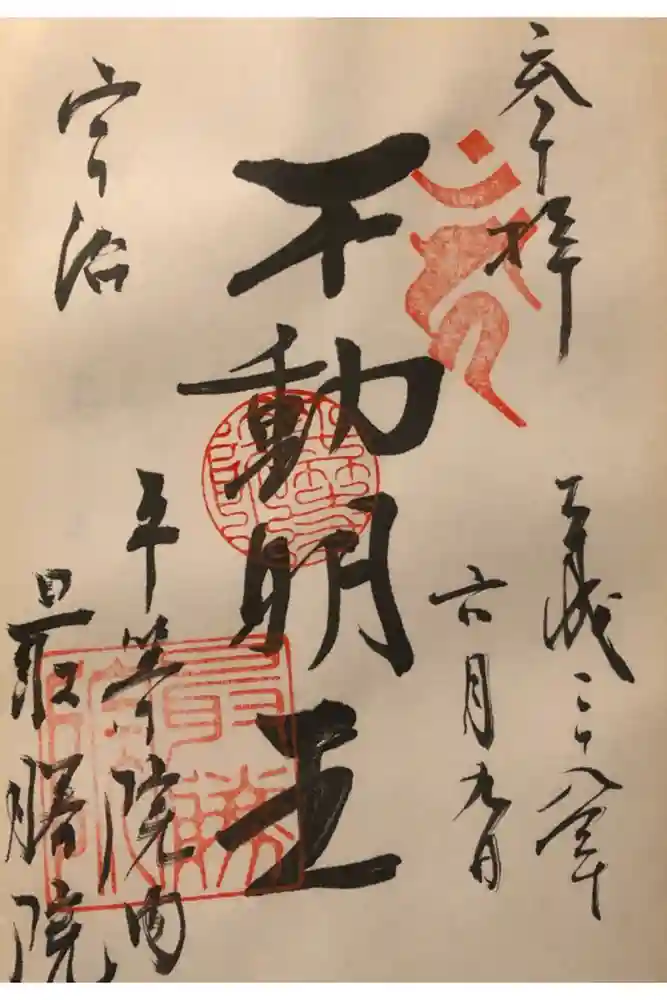 参拝
平成二十八年
六月九日
不動明王
宇治
平等院内
最勝院